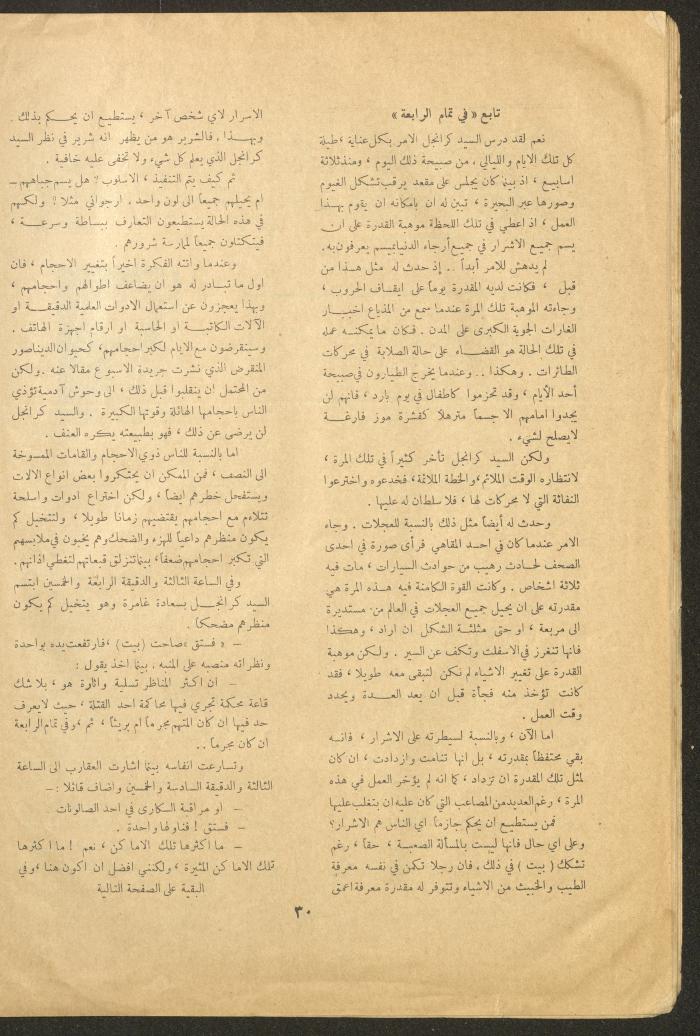 تابع « في تمام الرابعة »
نعم لقد درس السيد كرانجل الامر بكل عناية ، طيلة
كل تلك الايام والليالي ، من صبيحة ذلك اليوم ، ومنذ ثلاثة
اسابيع ، اذ بينما كان يجلس على مقعد يرقب تشكل الغيوم
وصورها عبر البحيرة ، تبين له ان بامكانه ان يقوم بهذا
العمل ، اذ اعطي في تلك اللحظة موهبة القدرة على ان
يسم جميع الاشرار في جميع أرجاء الدنيا بميسم يعرفون به.
لم يدهش للامر أبداً .. إذ حدث له مثل هذا من
قبل ، فكانت لديه المقدرة يوماً على ايقاف الحروب ،
وجاءته الموهبة تلك المرة عندما سمع من المذياع اخبار
الغارات الجوية الكبرى على المدن . فكان ما يمكنه عمله
في تلك الحالة هو القضاء على حالة الصلابة في محركات
الطائرات . وهكذا .. وعندما يخرج الطيارون في صبيحة
أحد الأيام ، وقد تحزموا كاطفال في يوم بارد ، فانهم لن
يجدوا امامهم الا جسماً مترهلا كقشرة موز فارغة
لا يصلح لشيء .
ولكن السيد كرانجل تأخر كثيراً في تلك المرة ،
لانتظاره الوقت الملائم ، والخطة الملائمة ، فخدعوه واخترعوا
النفاثة التي لا محركات لها ، فلا سلطان له عليها .
وحدث له أيضاً مثل ذلك بالنسبة للعجلات . وجاء
الامر عندما كان في احد المقاهي فرأى صورة في احدى
الصحف لحادث رهيب من حوادث السيارات ، مات فيه
ثلاثة اشخاص . وكانت القوة الكامنة فيه هذه المرة هي
مقدرته على ان يحيل جميع العجلات في العالم من مستديرة
الى مربعة ، او حتى مثلثة الشكل ان اراد ، وهكذا
فانها تنغرز في الاسفلت وتكف عن السير . ولكن موهبة
القدرة على تغيير الاشياء لم تكن لتبقى معه طويلا ، فقد
كانت تؤخذ منه فجأة قبل ان يعد العدة ويحدد
وقت العمل .
اما الآن ، وبالنسبة لسيطرته على الاشرار ، فانه
بقي محتفظاً بمقدرته ، بل انها تنامت وازدادت ، ان كان
لمثل تلك المقدرة ان تزداد ، كما انه لم يؤخر العمل في هذه
المرة ، رغم العديد من المصاعب التي كان عليه ان يتغلب عليها
فمن يستطيع ان يحكم جازماً اي الناس هم الاشرار؟
وعلى اي حال فانها ليست بالمسألة الصعبة ، حقاً ، رغم
تشكك ( بيت ) في ذلك ، فان رجلا تكمن في نفسه معرفة
الطيب والخبيث من الاشياء وتتوفر له مقدرة معرفة اعمق
الاسرار لاي شخص آخر ، يستطيع ان يحكم بذلك .
وبهذا ، فالشرير هو من يظهر انه شرير في نظر السيد
كرانجل الذي يعلم كل شيء ولا تخفى عليه خافية .
ثم كيف يتم التنفيذ ، الاسلوب ؟ هل يسم جباههم –
ام يحيلهم جميعاً الى لون واحد ، ارجواني مثلا ؟ ولكنهم
في هذه الحالة يستطيعون التعارف ببساطة وسرعة ،
فيتكتلون جميعاً لممارسة شرورهم .
وعندما واتته الفكرة اخيراً بتغيير الاحجام ، فان
اول ما تبادر له هو ان يضاعف اطوالهم واحجامهم ،
وبهذا يعجزون عن استعمال الادوات العلمية الدقيقة او
الآلات الكاتبة او الحاسبة او ارقام اجهزة الهاتف .
وسينقرضون مع الايام لكبر احجامهم ، كحيوان الديناصور
المنقرض الذي نشرت جريدة الاسبوع مقالا عنه . ولكن
من المحتمل ان ينقلبوا قبل ذلك ، الى وحوش آدمية تؤذي
الناس باحجامها الهائلة وقوتها الكبيرة . والسيد كرانجل
لن يرضى عن ذلك ، فهو بطبيعته يكره العنف .
اما بالنسبة للناس ذوي الاحجام والقامات الممسوخة
الى النصف ، فمن الممكن ان يبتكروا بعض انواع الالات
ويستفحل خطرهم ايضاً ، ولكن اختراع ادوات واسلحة
تتلاءم مع احجامهم يقتضيهم زمانا طويلا ، ولنتخيل كم
يكون منظرهم داعياً للهزء والضحك وهم يخبون في ملابسهم
التي تكبر احجامهم ضعفاً ، بينما تنزلق قبعاتهم لتغطي اذانهم.
وفي الساعة الثالثة والدقيقة الرابعة والخمسين ابتسم
السيد كرانجل بسعادة غامرة وهو يتخيل كم يكون
منظرهم مضحكاً .
– « فستق »صاحت (بيت) ، فارتفعت يده بواحدة
ونظراته منصبه على المنبه ، بينما اخذ يقول :
– ان اكثر المناظر تسلية واثارة هو ، بلا شك
قاعة محكمة تجري فيها محاكمة احد القتلة ، حيث لا يعرف
احد فيها ان كان المتهم مجرماً ام بريئاً ، ثم ، وفي تمام الرابعة
ان كان مجرماً ..
وتسارعت انفاسه بينما اشارت العقارب الى الساعة
الثالثة والدقيقة السادسة والخمسين واضاف قائلا : –
– او مراقبة السكارى في احد الصالونات
– فستق ! فناولها واحدة .
– ما اكثرها تلك الاماكن ، نعم ! ما اكثرها
تلك الاماكن المثيرة ، ولكنني افضل ان اكون هنا ، وفي
البقية على الصفحة التالية
٣٠